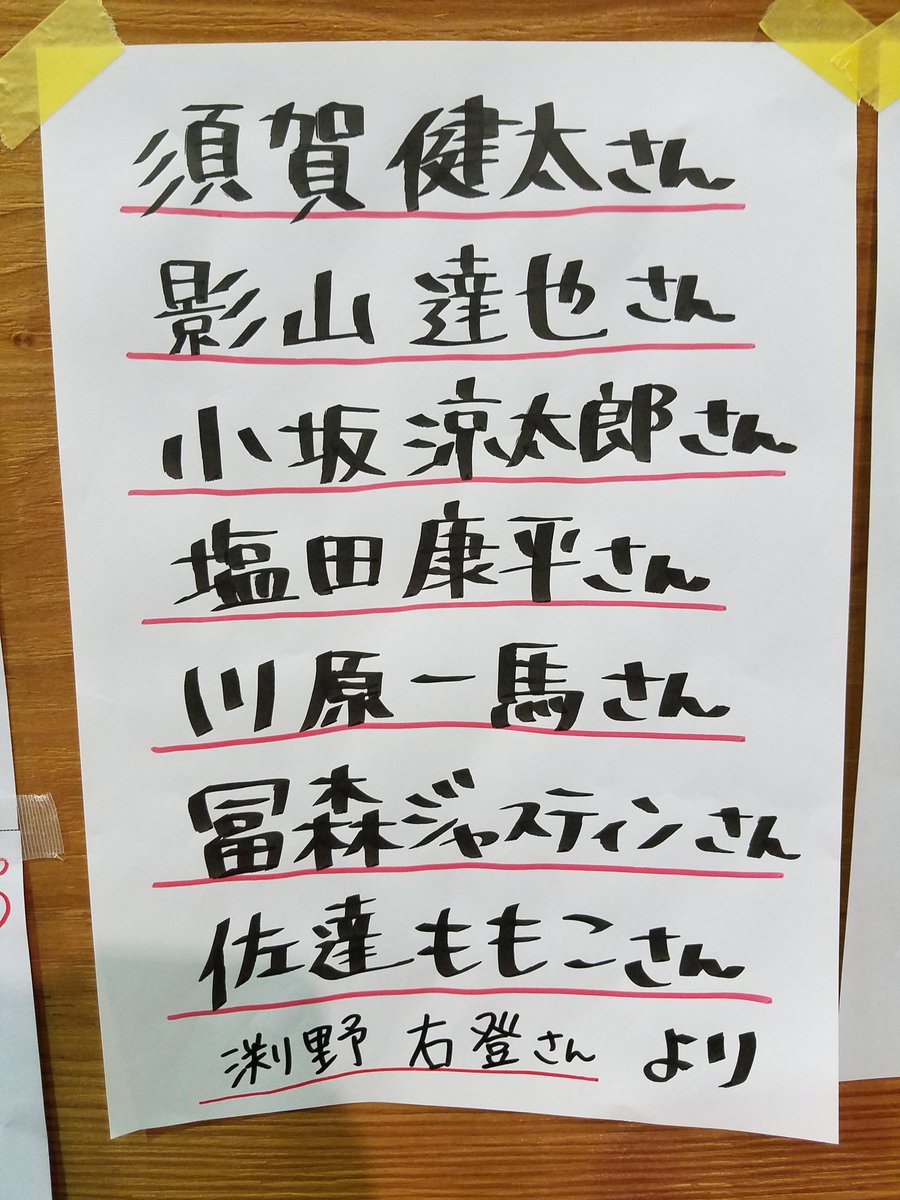 須賀健太さん
影山達也さん
小坂涼太郎さん
塩田康平さん
川原一馬さん
冨森ジャスティンさん
佐達ももこさん
渕野右登さん より